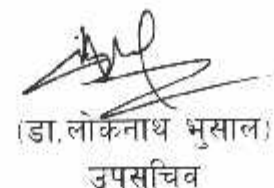 (डा.लोकनाथ भुसाल)
उपसचिव